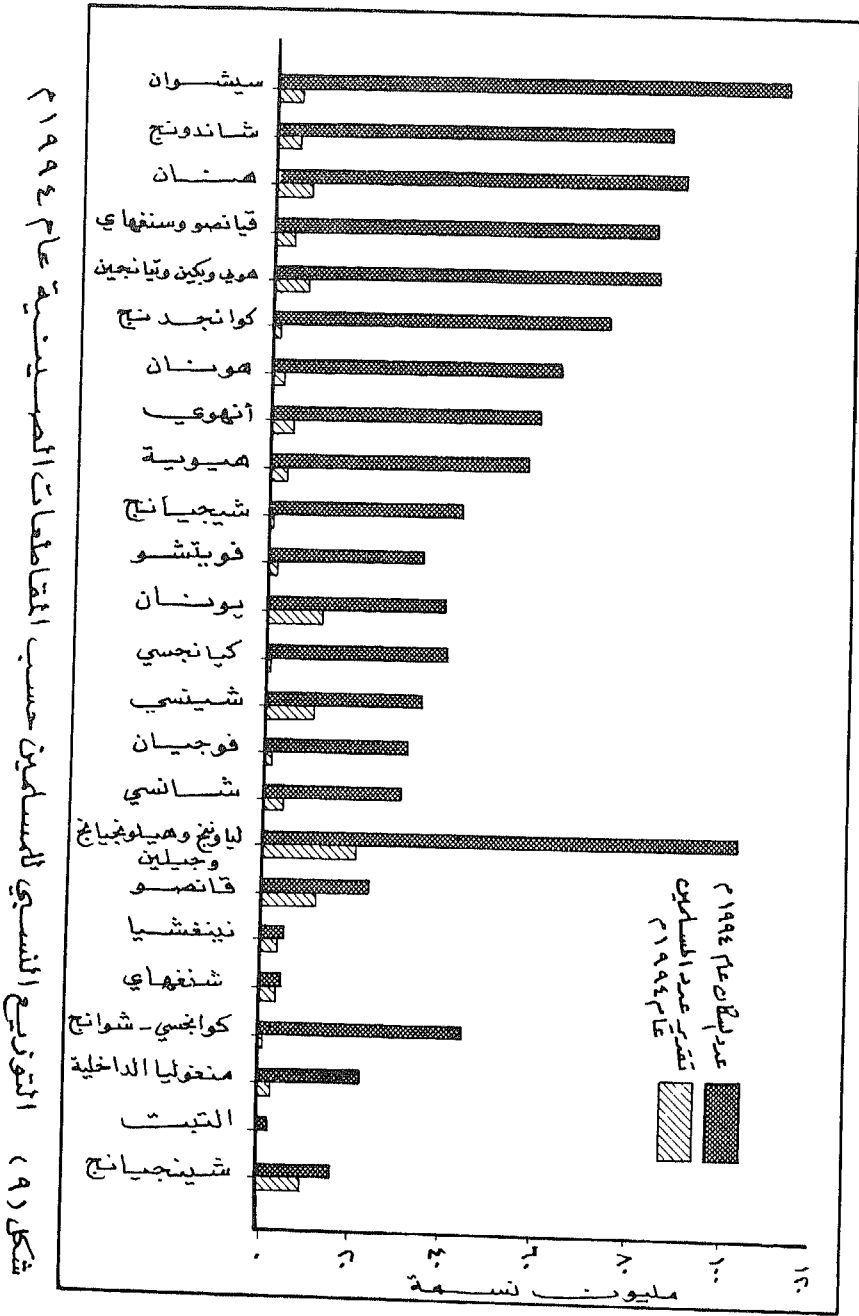 سيشوان
شاندونج
هنان
قيانصو وسنغهاي
هوبي وبكين وتيانجين
كوانجدنج
هونان
أنهوي
هيوبية
شيجيانج
فويتشو
يونان
كيانجسي
شينسي
فوجيان
شانسي
لياونينج وهيلونجيانج
وجيلين
قانصو
نينغشيا
شنغهاي
كوانجسي - شوانج
منغوليا الداخلية
التبت
شينجيانج
عدد السكان عام ١٩٩٤م
تقدير عدد المسلمين
عام ١٩٩٤م
٠
٢٠
٤٠
٦٠
٨٠
١٠٠
١٢٠
مليون نسمة
شكل (٩) التوزيع النسبي للمسلمين حسب المقاطعات الصينية عام ١٩٩٤م